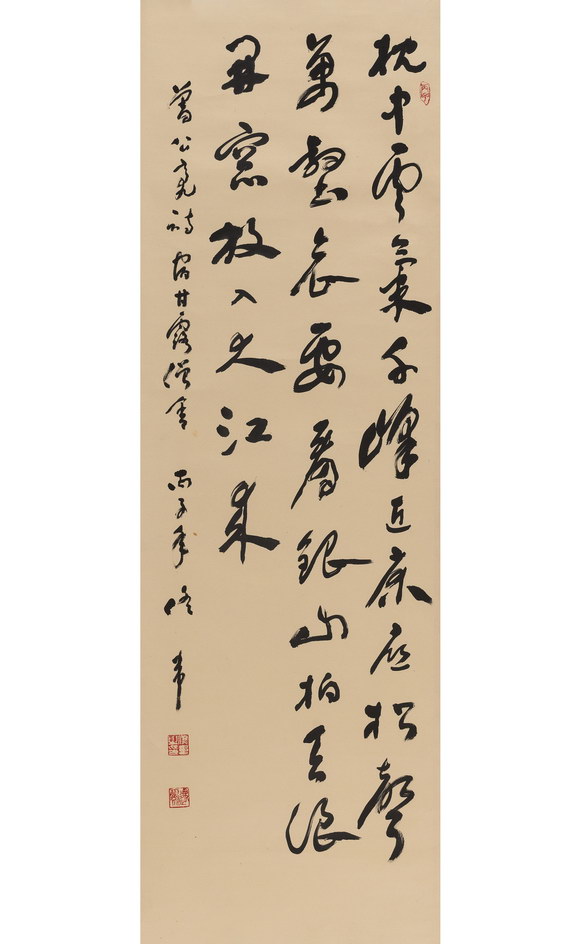 枕中雲氣千峰近床底松聲
萬壑哀要看銀山拍天浪
開窓放入大江來
曾公亮詩宿甘露僧舍 丙子年